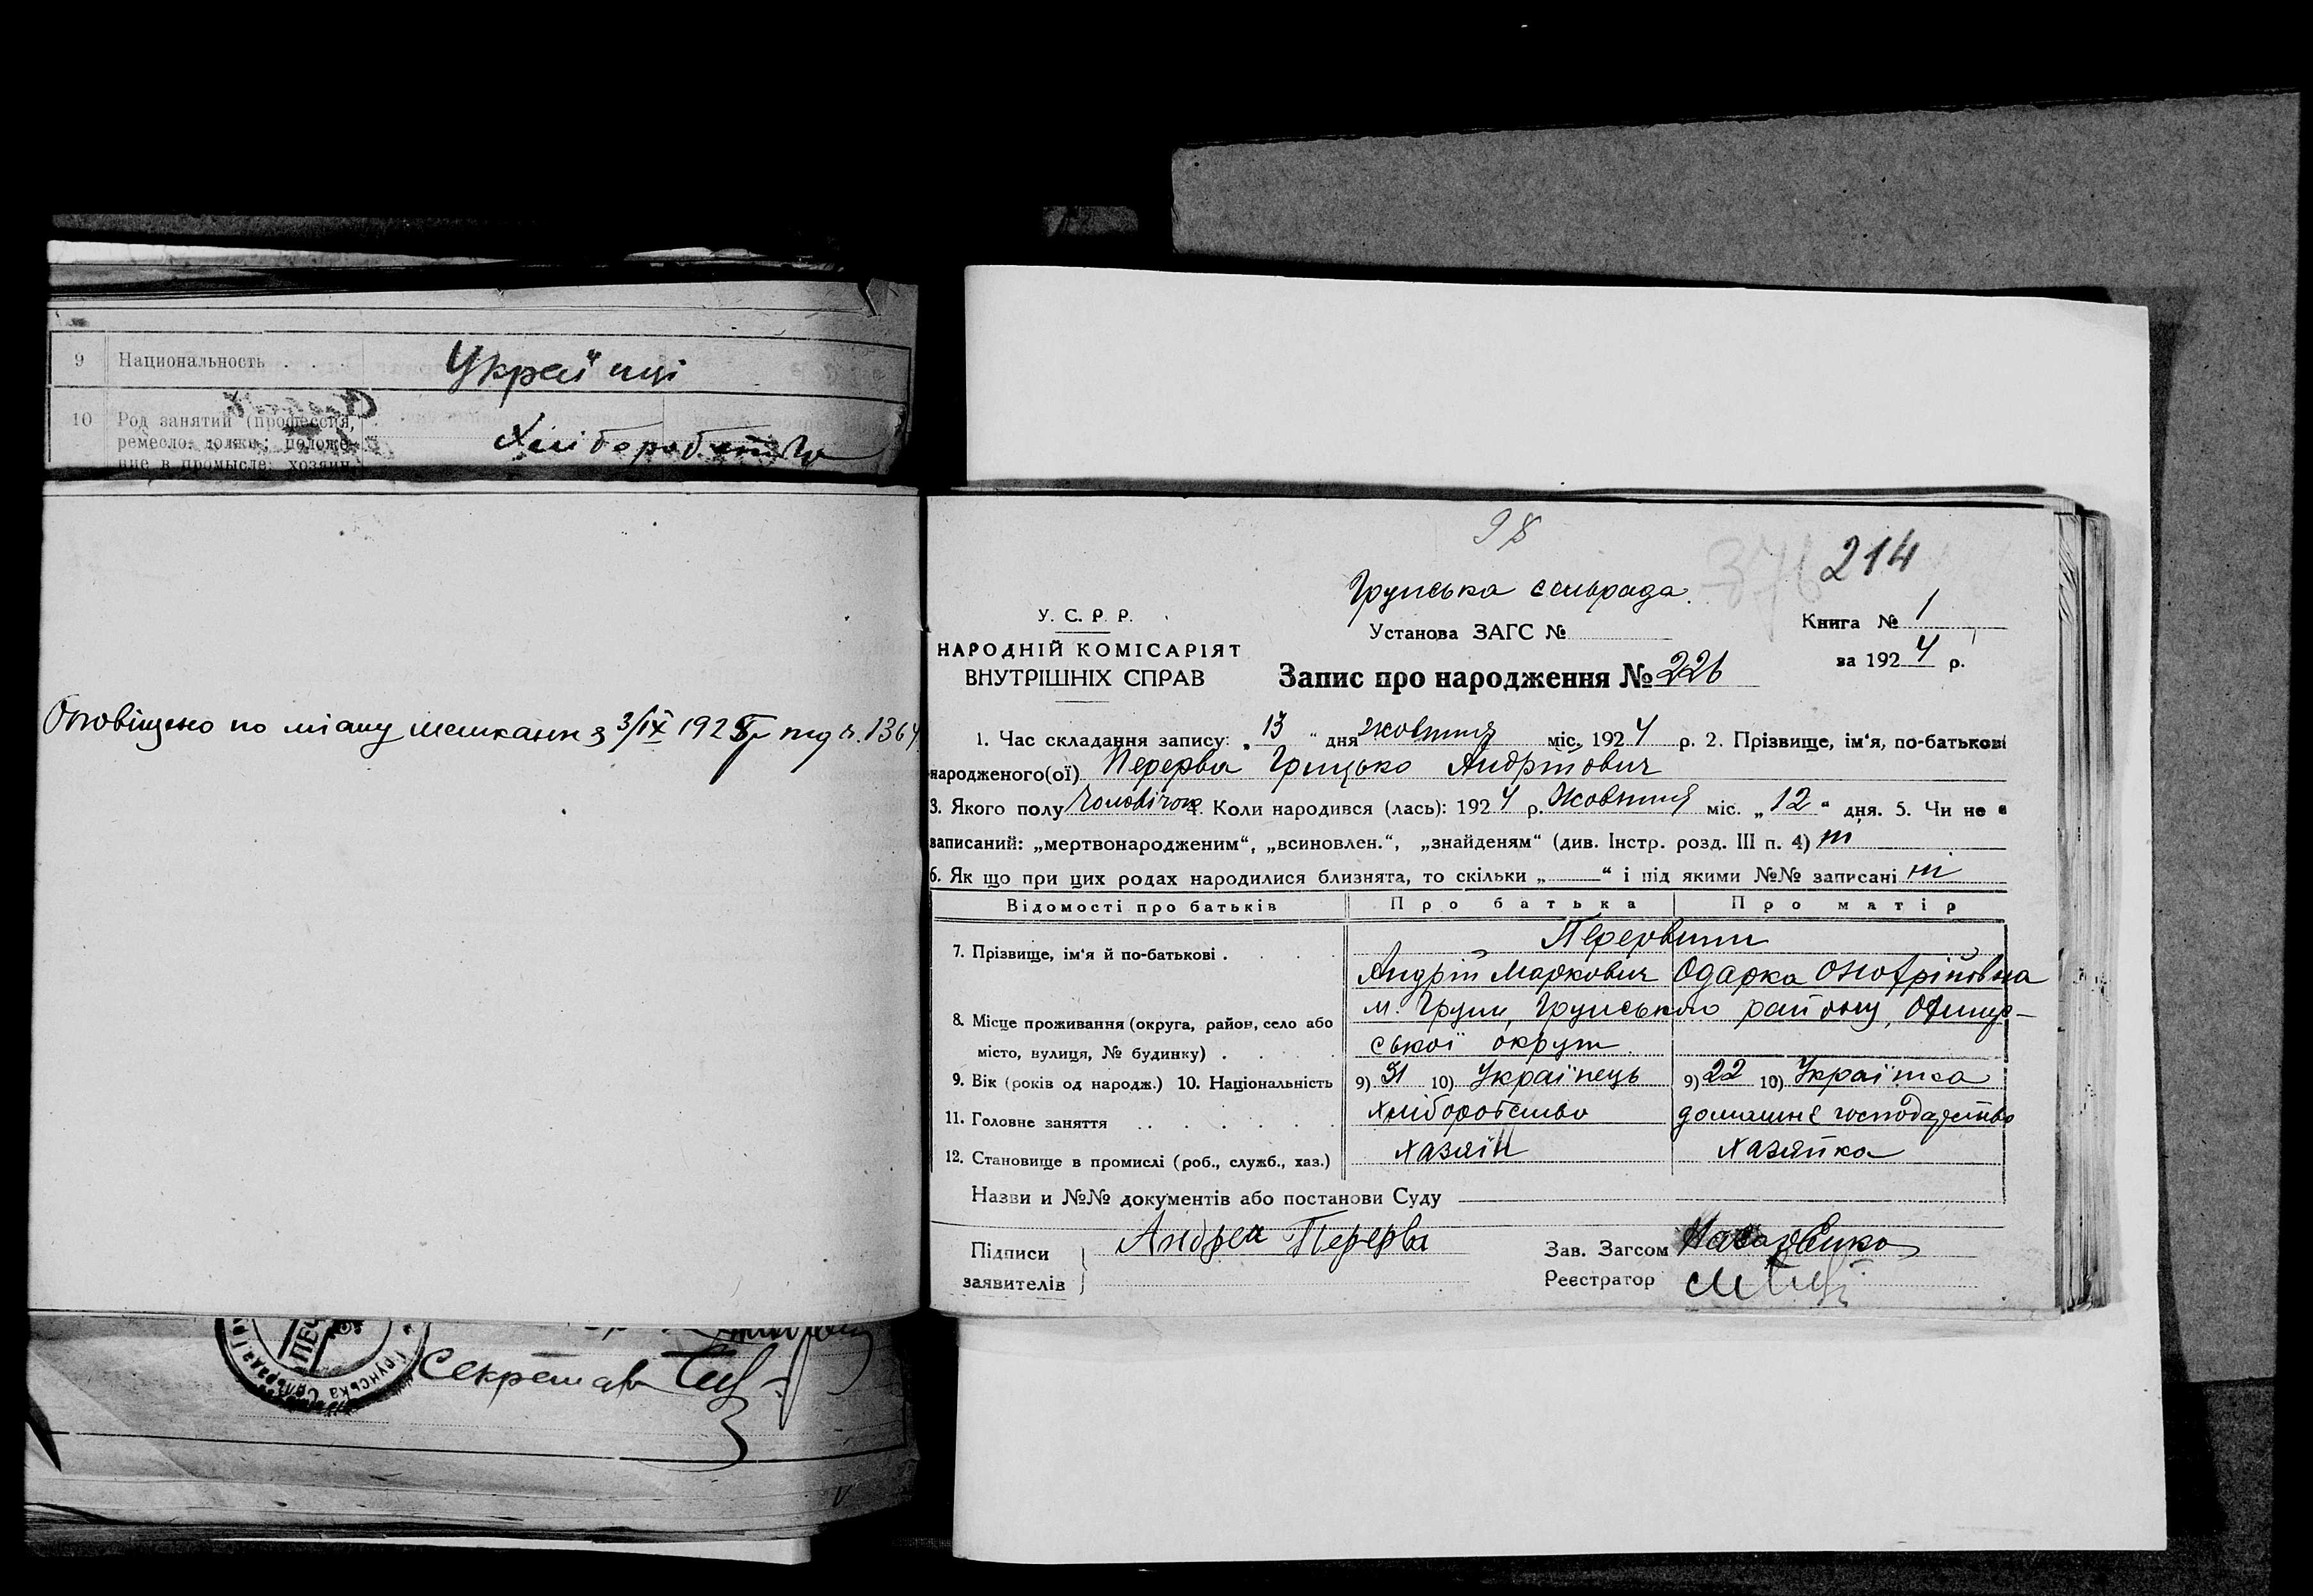 9 Национальность . . . . Українці
10 Род занятий (профессия, Хліборобство
ремесло, должн.; положе-
ние в промысле: хозяин,
Оповіщено по місцу мешкання 3/IX 1925 р. під ч. 1364
Грунська Сільрада
Секретар
98
214
Грунська сільрада.
У. С. Р. Р.
Установа ЗАГС №
Книга № 1
НАРОДНІЙ КОМІСАРІЯТ
ВНУТРІШНІХ СПРАВ
Запис про народження № 226
за 1924 р.
1. Час складання запису: „13" дня жовтня міс. 1924 р. 2. Прізвище, ім'я, по-батькові
народженого(ої) Перерва Грицько Андрійович
3. Якого полу чоловічого 4. Коли народився (лась): 1924 р. Жовтня міс. „12" дня. 5. Чи не є
записаний: „мертвонародженим", „всиновлен.", „знайденям" (див. Інстр. розд. III п. 4) ні
6. Як що при цих родах народилися близнята, то скільки „—" і під якими №№ записані ні
Відомості про батьків Про батька Про матір
Перервини
7. Прізвище, ім'я й по-батькові . . . .
Андрій Маркович Одарка Онофріївна
м. Грунь, Грунського району,
8. Місце проживання (округа, район, село або
місто, вулиця, № будинку) . . . .
ської округи
9. Вік (років од народж.) 10. Національність 9) 31 10) Українець 9) 22 10) Українка
11. Головне заняття . . . . . . хліборобство домашнє господарство
12. Становище в промислі (роб., служб., хаз.) хазяїн хазяйка
Назви и №№ документів або постанови Суду
Підписи
заявителів
Андрей Перерва
Зав. Загсом
Реєстратор